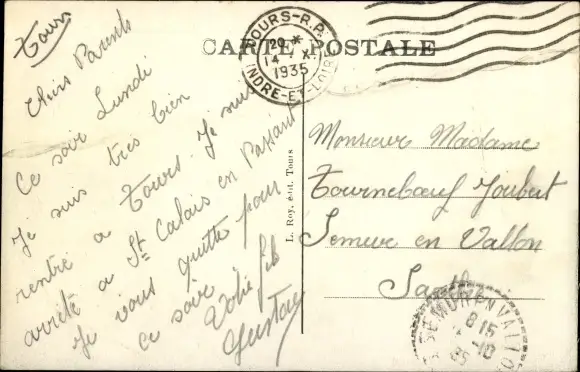 Tours
CARTE POSTALE
TOURS-R.P.
20 *
14 - X
1935
INDRE-ET-LOIRE
Chers Parents
Ce soir Lundi
Je suis très bien
rentré a Tours. Je suis
arrêté a St Calais en Passant
Je vous quitte pour
ce soir
Votre fils
Gustave
L. Roy, édit. Tours
Monsieur Madame
Tourneboeuf Joubert
Semur en Vallon
Sarthe
SEMUR EN VALLON
8 15
-10
35